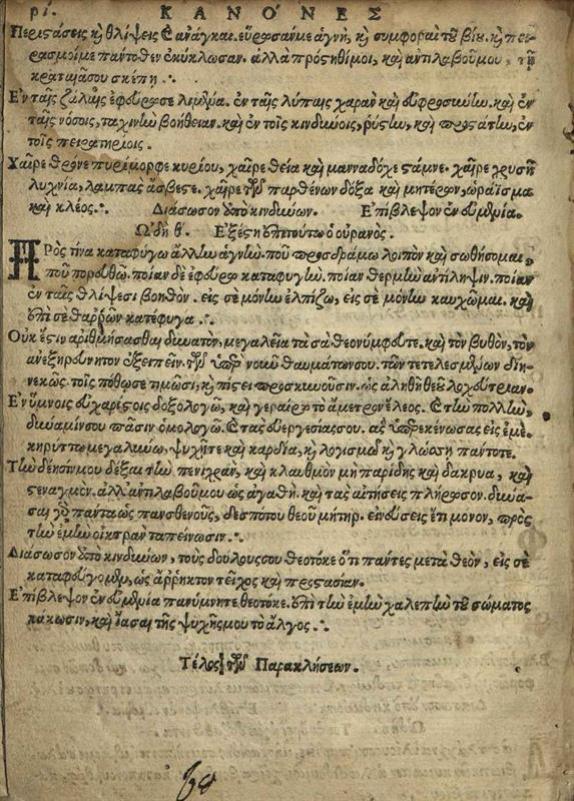 ρί. ΚΑΝΟΝΕΣ
Περιστάσεις κ θλίψεις κ ανάγκαι. εὕροσάν με ἁγνὴ, κ συμφοραὶ τοῦ βίου. κ πει-
ρασμοί με παντοθεν ἐκύκλωσαν. ἀλλὰ πρόστηθί μοι, καὶ ἀντιλαβοῦ μου, τῇ
κραταιᾷ σου σκέπῃ ⁘
Ἐν ταῖς ζάλαις ἐφεῦρόν σε λιμένα. ἐν ταῖς λύπαις χαρὰν καὶ εὐφροσύνην. καὶ ἐν
ταῖς νόσοις, ταχινὴν βοήθειαν. καὶ ἐν τοῖς κινδύνοις, ῥύστιν, καὶ προστάτιν, ἐν
τοῖς πειρατηρίοις.
Χαῖρε θρόνε πυρίμορφε κυρίου, χαῖρε θεία καὶ μανναδόχε στάμνε. χαῖρε χρυσῆ
λυχνία, λαμπὰς ἄσβεστε. χαῖρε τῶν παρθένων δόξα καὶ μητέρων, ὡράϊσμα
καὶ κλέος ⁘ Διάσωσον ἀπὸ κινδύνων. Ἐπίβλεψον ἐν εὐμενείᾳ.
Ὠδὴ θ. Ἐξέστη ἐπὶ τούτῳ ὁ οὐρανός.
ΠΡὸς τίνα καταφύγω ἄλλην ἁγνήν. ποῦ προσδράμω λοιπὸν καὶ σωθήσομαι,
ποῦ πορευθῶ. ποίαν δὲ ἐφεύρω καταφυγήν. ποίαν θερμὴν ἀντίληψιν. ποίαν
ἐν ταῖς θλίψεσι βοηθὸν. εἰς σὲ μόνην ἐλπίζω, εἰς σὲ μόνην καυχῶμαι. καὶ
ἐπὶ σὲ θαρρῶν κατέφυγα ⁘
Οὐκ ἔστιν ἀριθμήσασθαι δυνατὸν. μεγαλεῖα τὰ σὰ θεονύμφευτε. καὶ τὸν βυθὸν, τὸν
ἀνεξηρεύνητον ἐξειπεῖν. τῶν ὑπὲρ νοῦν θαυμάτων σου. τῶν τετελεσμένων διη-
νεκῶς. τοῖς πόθῳ σε τιμῶσι, κ πίστει προσκυνοῦσιν. ὡς ἀληθῆ θεοῦ λοχεύτριαν.
Ἐν ὕμνοις εὐχαρίστοις δοξολογῶ, καὶ γεραίρω τὸ ἄμετρον ἔλεος. κ τὴν πολλὴν,
δύναμίν σου πᾶσιν ὁμολογῶ. κ τὰς εὐεργεσίας σου. ἃς ὑπερεκένωσας εἰς ἐμὲ.
κηρύττω μεγαλύνω, ψυχῇ τε καὶ καρδίᾳ, κ λογισμῷ κ γλώσσῃ πάντοτε.
Τὴν δέησίν μου δέξαι τὴν πενιχρὰν, καὶ κλαυθμὸν μὴ παρίδῃς καὶ δάκρυα, καὶ
στεναγμόν. ἀλλ' ἀντιλαβοῦ μου ὡς ἀγαθὴ. καὶ τὰς αἰτήσεις πλήρωσον. δύνα-
σαι γὸ πάντα ὡς πανσθενοῦς, δεσπότου θεοῦ μήτηρ. εἰ νεύσεις ἔτι μόνον, πρὸς
τὴν ἐμὴν οἰκτρὰν ταπείνωσιν ⁘
Διάσωσον ἀπὸ κινδύνων, τοὺς δούλους σου θεοτόκε ὅτι πάντες μετὰ θεὸν, εἰς σὲ
καταφεύγομεν, ὡς ἄρρηκτον τεῖχος καὶ προστασίαν.
Ἐπίβλεψον ἐν εὐμενείᾳ πανύμνητε θεοτόκε. ἐπὶ τὴν ἐμὴν χαλεπὴν τοῦ σώματος
κάκωσιν, καὶ ἴασαι τῆς ψυχῆς μου τὸ ἄλγος ⁘
Τέλος τῶν Παρακλήσεων.